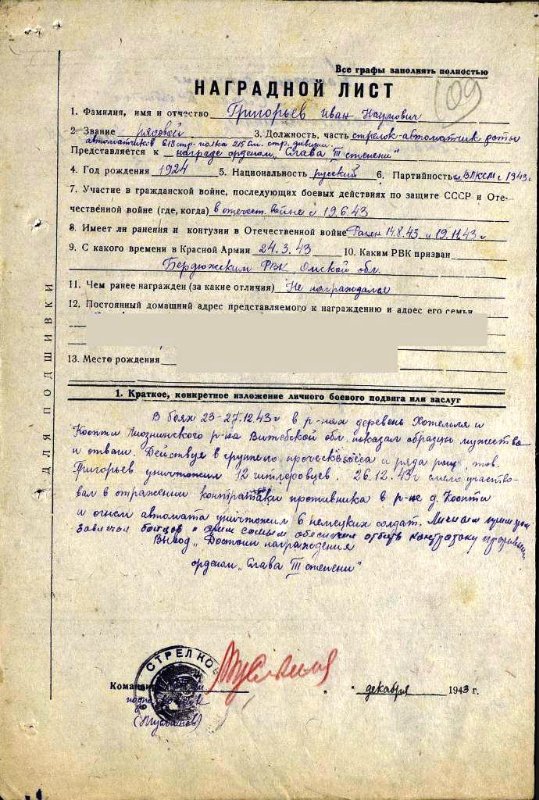 Все графы заполнять полностью
109
НАГРАДНОЙ ЛИСТ
1. Фамилия, имя и отчество Григорьев Иван Наумович
2. Звание рядовой 3. Должность, часть стрелок-автоматчик роты
автоматчиков 618 стр. полка 215 стр. дивизии
Представляется к награде орденом "Слава III степени"
4. Год рождения 1924 5. Национальность русский 6. Партийность ВЛКСМ с 1943 г.
7. Участие в гражданской войне, последующих боевых действиях по защите СССР и Оте-
чественной войне (где, когда) в отечеств. войне с 19.6.43
8. Имеет ли ранения и контузии в Отечественной войне Ранен 14.8.43 и 19.11.43 г.
9. С какого времени в Красной Армии 24.3.43 10. Каким РВК призван
Бердюжским РВК Омской обл.
11. Чем ранее награжден (за какие отличия) Не награждался
12. Постоянный домашний адрес представляемого к награждению и адрес его семьи
13. Место рождения
ДЛЯ ПОДШИВКИ
1. Краткое, конкретное изложение личного боевого подвига или заслуг
В боях 23-27.12.43 г в р-нах деревень Хотемля и
Коопти Лиознинского р-на Витебской обл. показал образцы мужества
и отваги. Действуя в ряда рощ, тов.
Григорьев уничтожил 12 гитлеровцев. 26.12.43 г смело участво-
вал в отражении контратаки противника в р-не д. Коопти
и огнем автомата уничтожил 6 немецких солдат. Личным примером
бойцов и этим самым обеспечил отбить контратаку
Вывод: Достоин награждения
орденом "Слава III степени"
СТРЕЛКО
Коман
декабря 1943 г.